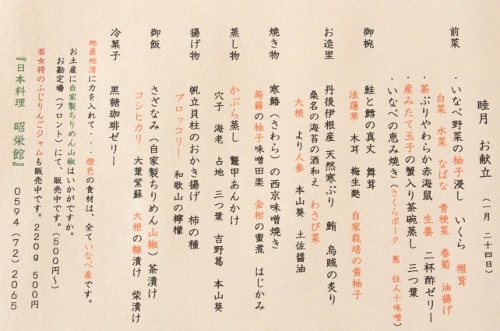 睦月 お献立 (一月 二十四日)
前菜 ・いなべ野菜の柚子浸し いくら 椎茸
白菜 水菜 なばな 青梗菜 春菊 油揚げ
・茶ぶりやわらか赤海鼠 生姜 二杯酢ゼリー
・産みたて玉子の蟹入り茶碗蒸し 三つ葉
・いなべの恵み焼き(さくらポーク 葱 仕人十味噌)
御椀 鮭と鱈の真丈 舞茸
法蓮草 木耳 梅生麩 自家栽培の黄柚子
お造里 丹後伊根産 天然寒ぶり 鮪 烏賊の炙り
桑名の海苔の酒和え わさび菜
大根 より人参 本山葵 土佐醤油
焼き物 寒鰆(さわら)の西京味噌焼き
蒟蒻の柚子味噌田楽 金柑の蜜煮 はじかみ
蒸し物 かぶら蒸し 鼈甲あんかけ
穴子 海老 占地 三つ葉 吉野葛 本山葵
揚げ物 帆立貝柱のおかき揚げ 柿の種
ブロッコリー 和歌山の檸檬
御飯 さざなみ(自家製ちりめん山椒)茶漬け
コシヒカリ 大葉紫蘇 大根の糠漬け 柴漬け
冷菓子 黒糖珈琲ゼリー
地産地消に力を入れて・・・橙色の食材は、全ていなべ産です。
お土産に自家製ちりめん山椒はいかがですか。
お勘定場(フロント)にて、販売中です。(500円~)
若女将のふじりんごジャムも販売中です。220g 500円
『日本料理 昭栄館』 0594(72)2065